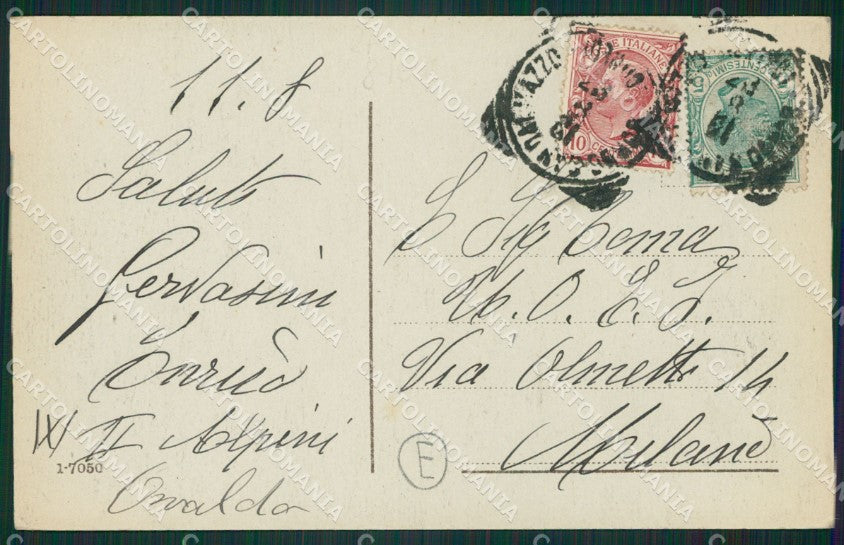 11.8
Saluti
Gervasini
Enrico
IX II Alpini
1-7050
Osvaldo
POSTE ITALIANE
10 CENT
CENTESIMI
E Sig Tema
U. O. E. I.
Via Olmetto 14
Milano
E
CARTOLINOMANIA